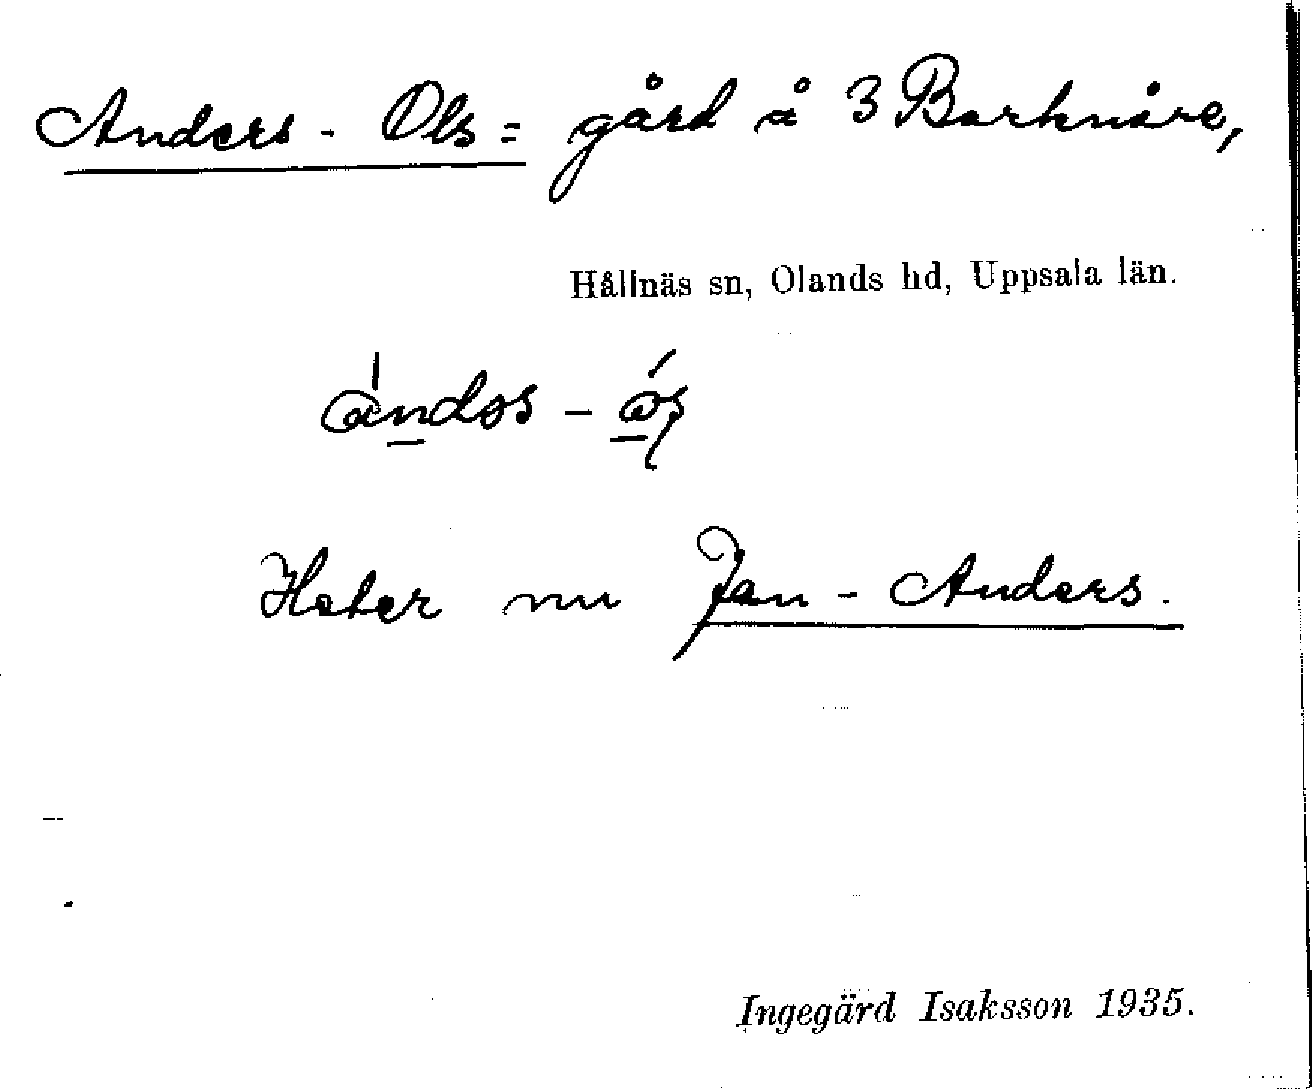 Anders-Ols= gård å 3 Barknåre,
Hållnäs sn, Olands hd, Uppsala län.
Heter nu Jan-Anders.
Ingegärd Isaksson 1935.